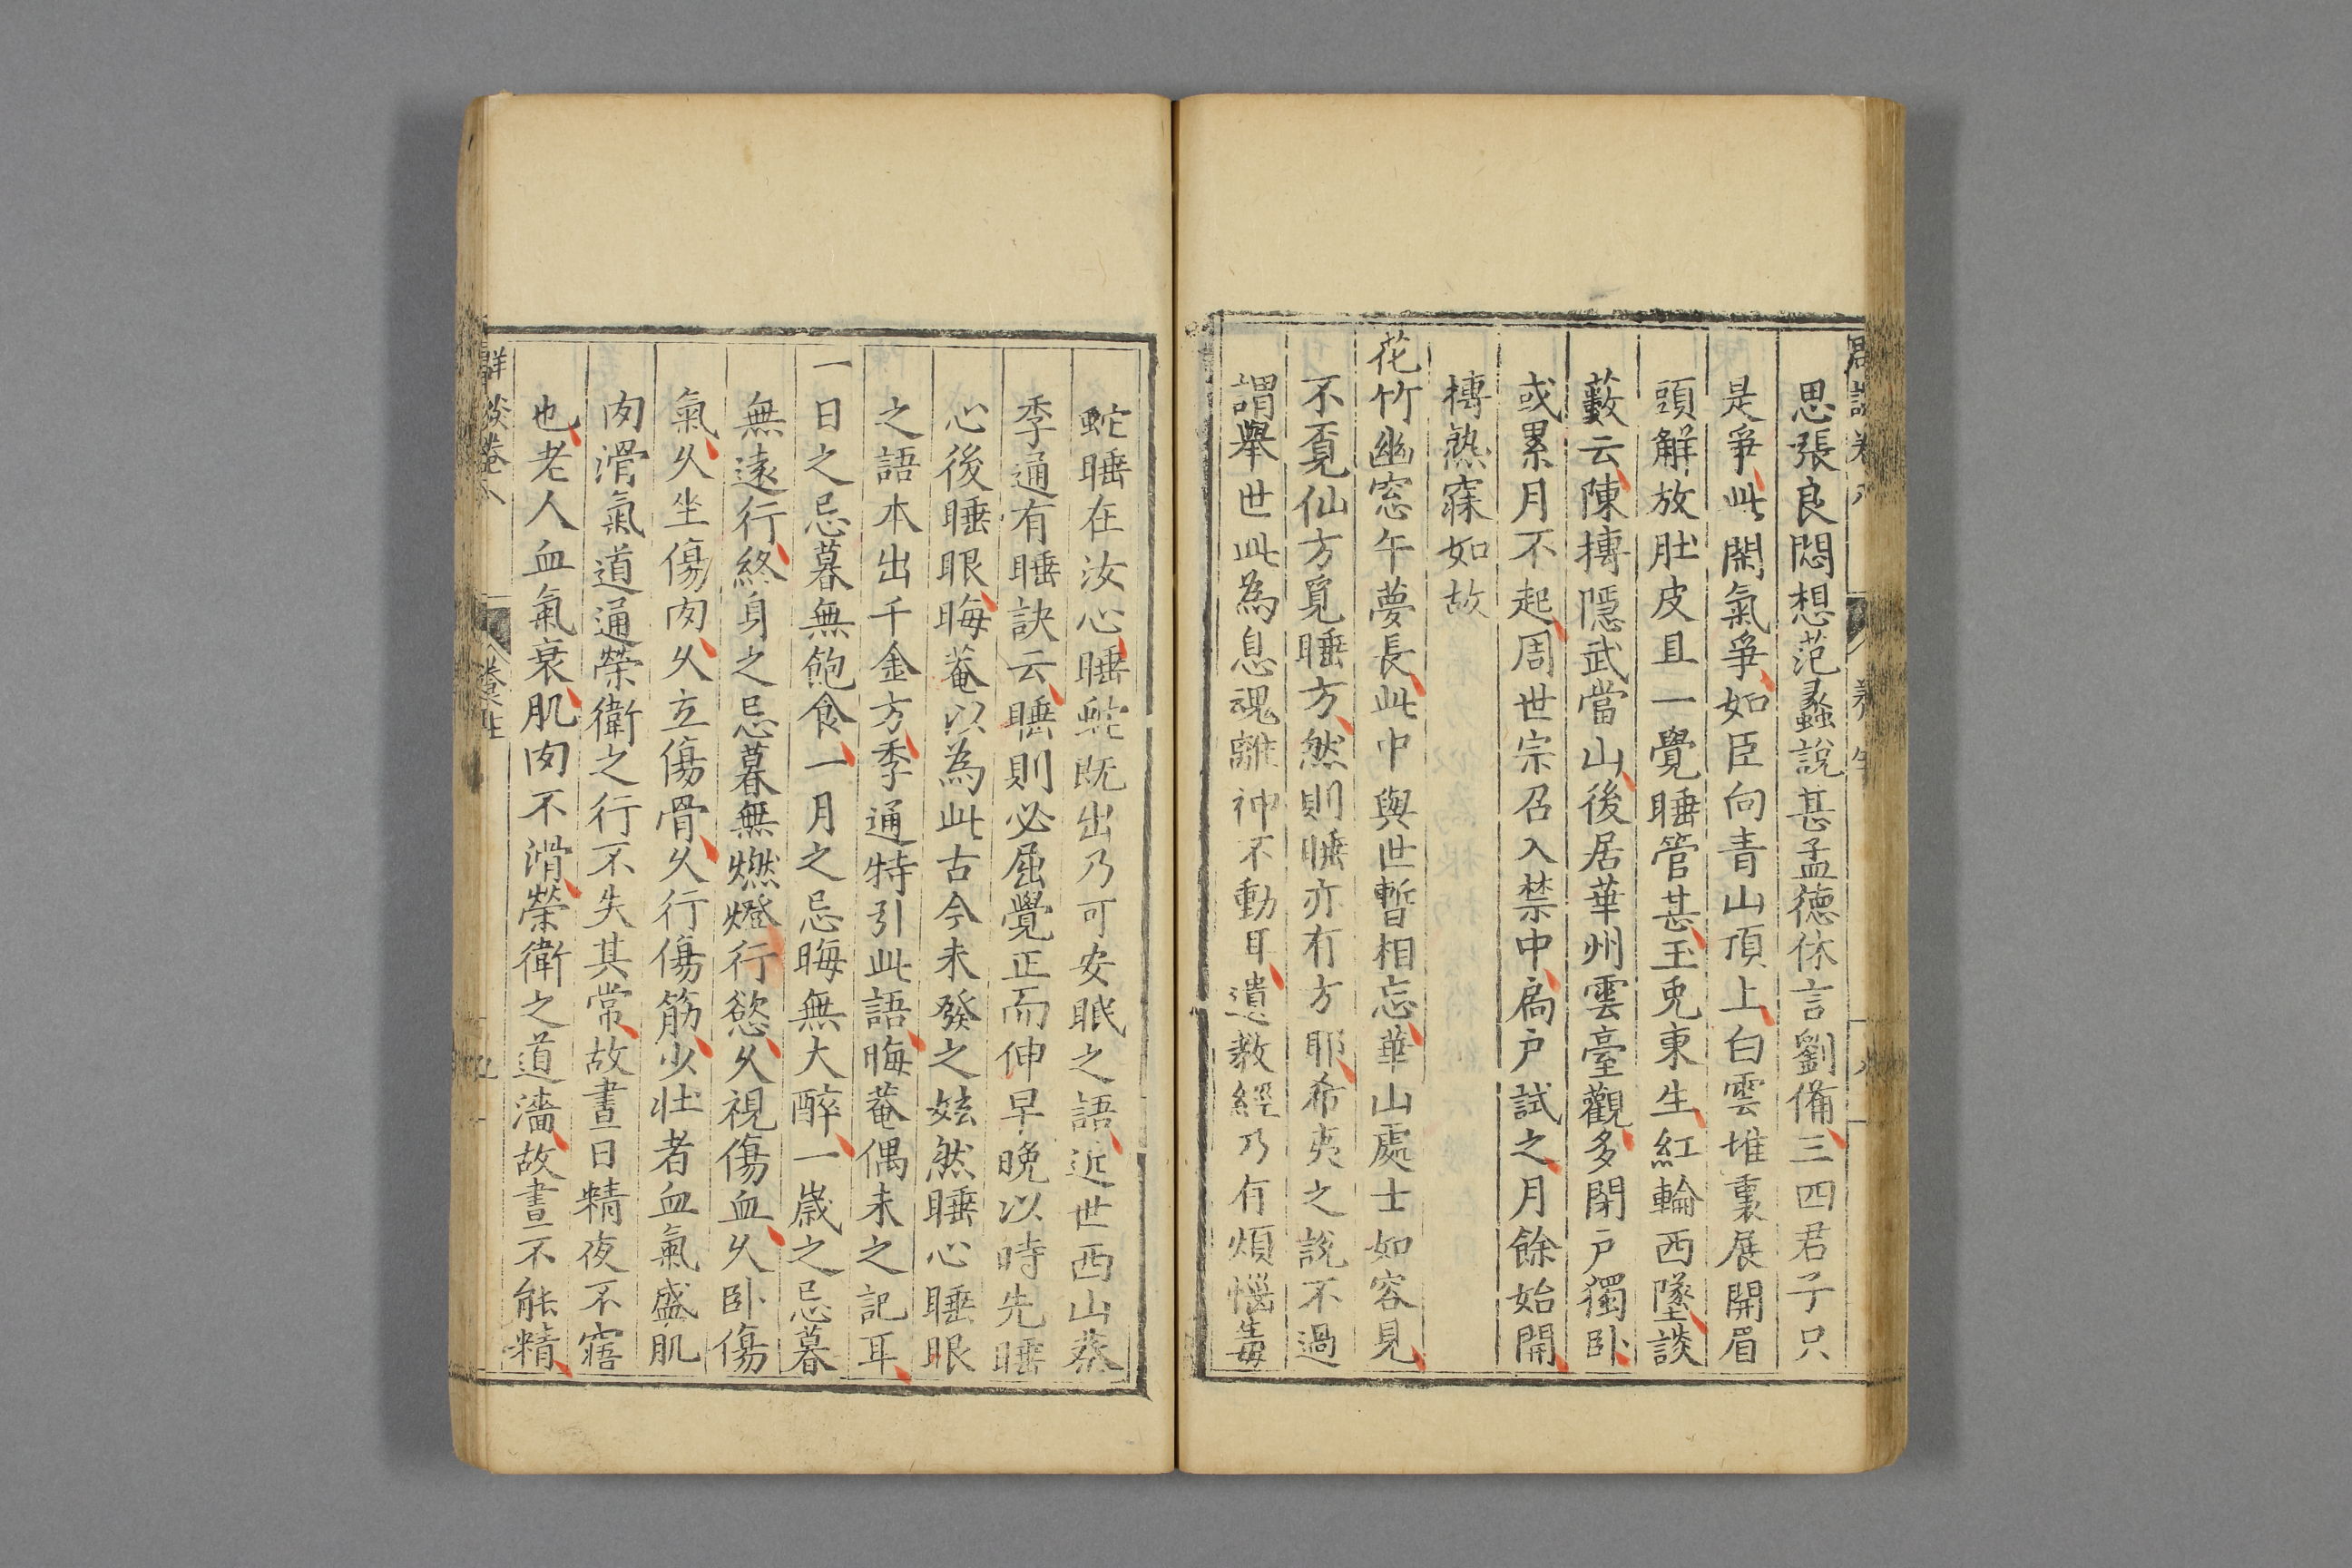 思張良悶想范蠡說甚孟德休言劉備三四君子只
是爭此閑氣爭如臣向青山頂上白雲堆裏展開眉
頭解放肚皮且一覺睡管甚玉兎東生紅輪西墜談
藪云陳摶隱武當山後居華州雲臺觀多閉戶獨臥
或累月不起周世宗召入禁中扃戶試之月餘始開
摶熟寐如故
花竹幽窓午夢長此中與世暫相忘華山處士如容見
不覔仙方覓睡方然則睡亦有方耶希夷之說不過
謂舉世此為息魂離神不動耳遺教經乃有煩惱毒
蛇睡在汝心睡蛇既出乃可安眠之語近世西山蔡
季通有睡訣云睡則必屈覺正而伸早晚以時先睡
心後睡眼晦菴以為此古今未發之玅然睡心睡眼
之語本出千金方季通特引此語晦菴偶未之記耳
一日之忌暮無飽食一月之忌晦無大醉一歲之忌暮
無遠行終身之忌暮無燃燈行慾久視傷血久臥傷
氣久坐傷肉久立傷骨久行傷筋少壯者血氣盛肌
肉滑氣道通榮衛之行不失其常故晝日精夜不寤
也老人血氣衰肌肉不滑榮衛之道濇故晝不能精